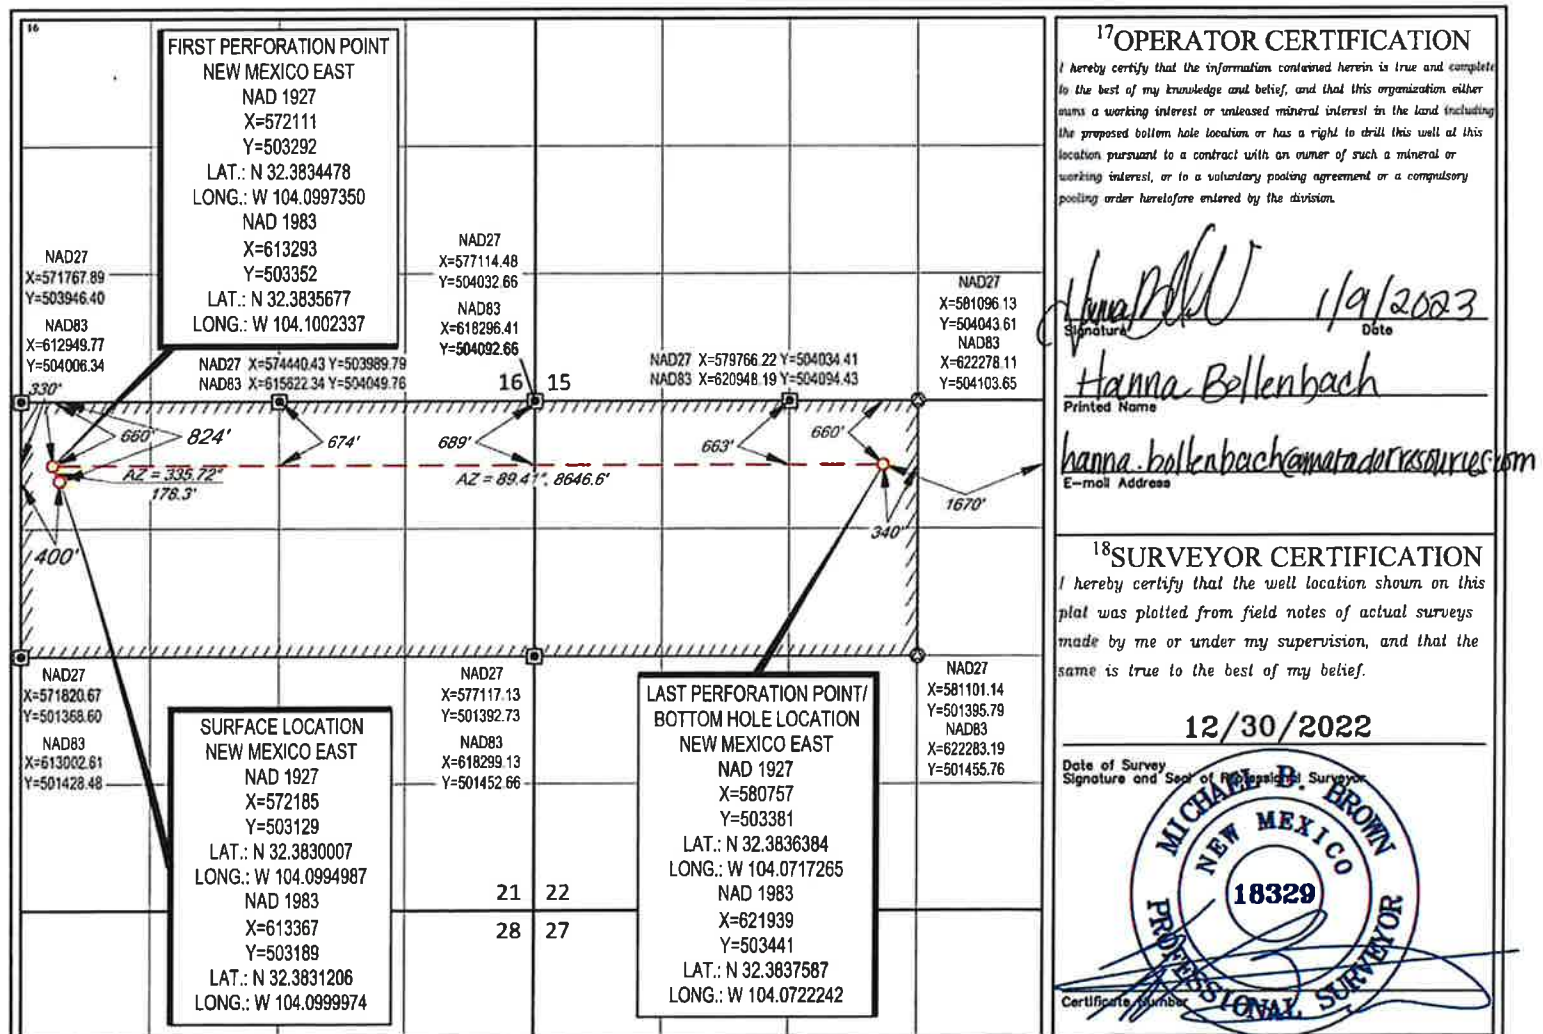 16
FIRST PERFORATION POINT
NEW MEXICO EAST
NAD 1927
X=572111
Y=503292
LAT.: N 32.3834478
LONG.: W 104.0997350
NAD 1983
X=613293
Y=503352
LAT.: N 32.3835677
LONG.: W 104.1002337
NAD27
X=571767.89
Y=503946.40
NAD83
X=612949.77
Y=504006.34
NAD27 X=574440.43 Y=503989.79
NAD83 X=615622.34 Y=504049.76
NAD27
X=577114.48
Y=504032.66
NAD83
X=618296.41
Y=504092.66
16 15
NAD27 X=579766.22 Y=504034.41
NAD83 X=620948.19 Y=504094.43
NAD27
X=581096.13
Y=504043.61
NAD83
X=622278.11
Y=504103.65
330'
660'
824'
674'
689'
663'
660'
AZ = 335.72°
178.3'
AZ = 89.41°, 8646.6'
1670'
340'
400'
NAD27
X=571820.67
Y=501368.60
NAD83
X=613002.61
Y=501428.48
SURFACE LOCATION
NEW MEXICO EAST
NAD 1927
X=572185
Y=503129
LAT.: N 32.3830007
LONG.: W 104.0994987
NAD 1983
X=613367
Y=503189
LAT.: N 32.3831206
LONG.: W 104.0999974
NAD27
X=577117.13
Y=501392.73
NAD83
X=618299.13
Y=501452.66
21 22
28 27
LAST PERFORATION POINT/
BOTTOM HOLE LOCATION
NEW MEXICO EAST
NAD 1927
X=580757
Y=503381
LAT.: N 32.3836384
LONG.: W 104.0717265
NAD 1983
X=621939
Y=503441
LAT.: N 32.3837587
LONG.: W 104.0722242
NAD27
X=581101.14
Y=501395.79
NAD83
X=622283.19
Y=501455.76
17OPERATOR CERTIFICATION
I hereby certify that the information contained herein is true and complete
to the best of my knowledge and belief, and that this organization either
owns a working interest or unleased mineral interest in the land including
the proposed bottom hole location or has a right to drill this well at this
location pursuant to a contract with an owner of such a mineral or
working interest, or to a voluntary pooling agreement or a compulsory
pooling order heretofore entered by the division.
1/9/2023
Signature Date
Hanna Bollenbach
Printed Name
hanna.bollenbach@matadorresources.com
E-mail Address
18SURVEYOR CERTIFICATION
I hereby certify that the well location shown on this
plat was plotted from field notes of actual surveys
made by me or under my supervision, and that the
same is true to the best of my belief.
12/30/2022
Date of Survey
Signature and Seal of Professional Surveyor
MICHAEL B. BROWN
NEW MEXICO
18329
PROFESSIONAL SURVEYOR
Certificate Number